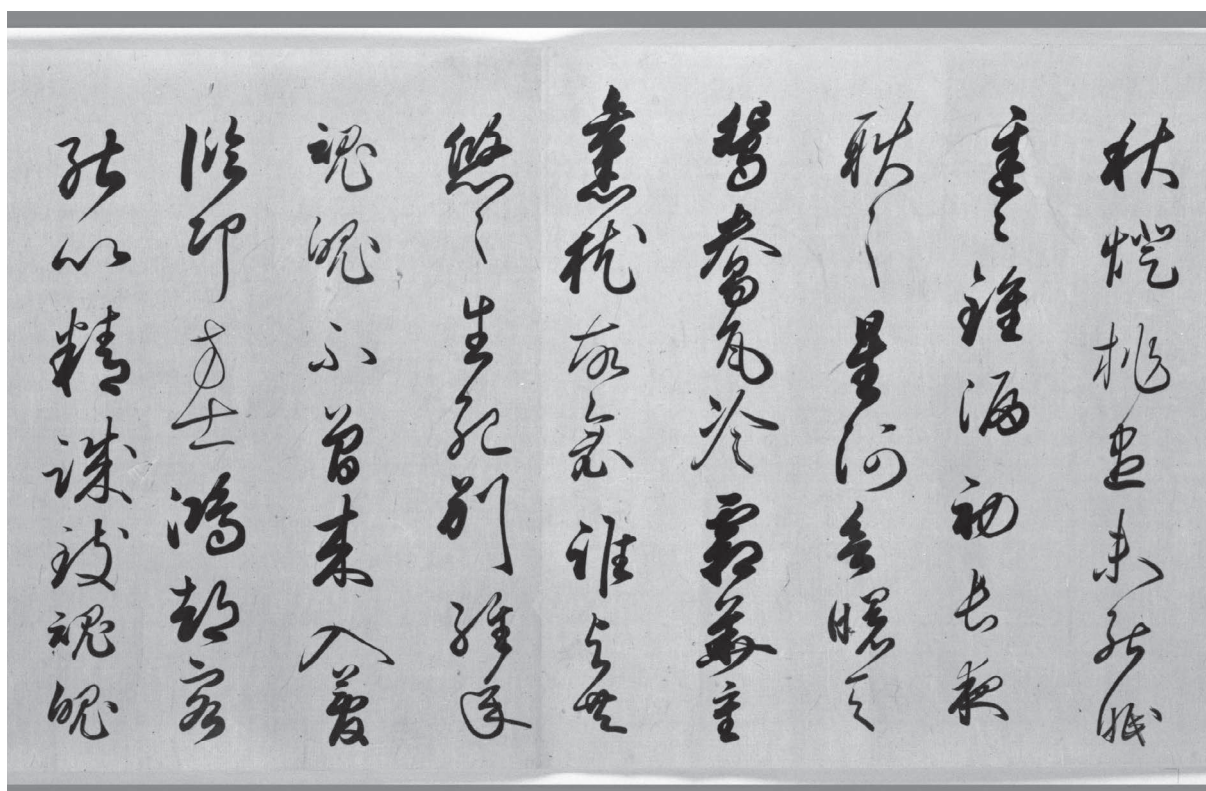 秋燈挑盡未能眠
遲〻鐘漏初長夜
耿〻星河欲曙天
鴛鴦瓦冷霜華重
舊枕故衾誰與共
悠〻生死別經年
魂魄不曾來入夢
臨邛方士鴻都客
能以精誠致魂魄